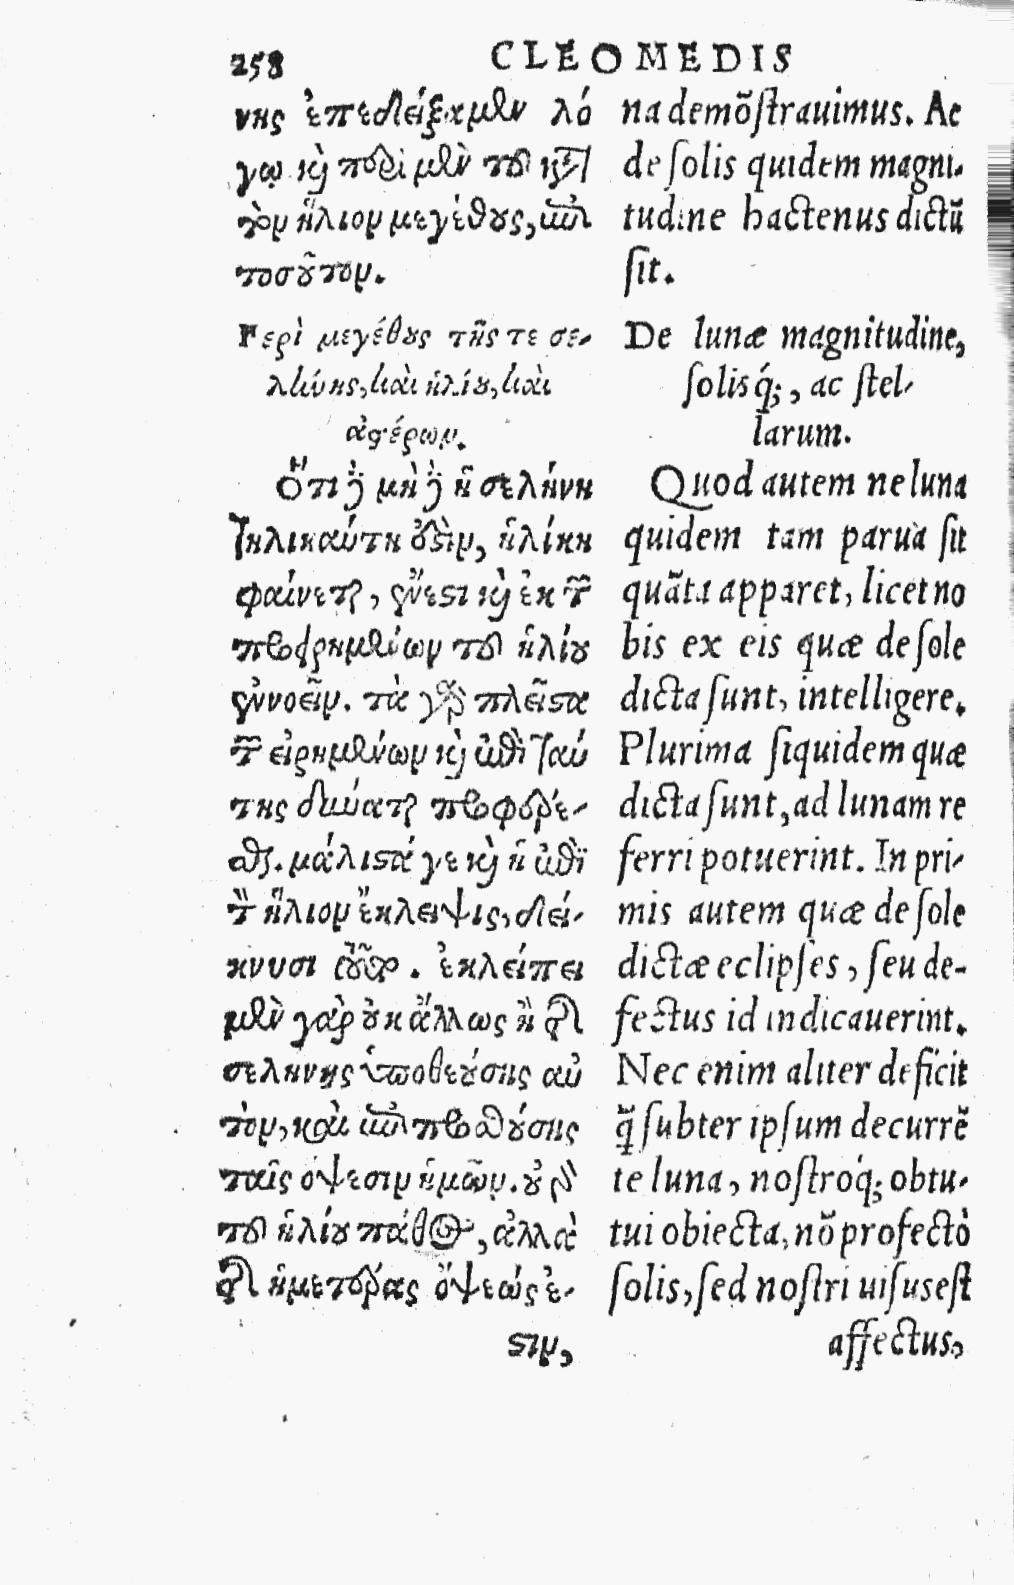 258 CLEOMEDIS
νης ἐπεδείξαμεν λό
γῳ καὶ περὶ μὲν τοῦ κατὰ
τὸν ἥλιον μεγέθους, ἐπὶ
τοσοῦτον.
Περὶ μεγέθους τῆς τε σε-
λήνης, καὶ ἡλίου, καὶ
ἀστέρων.
Ὅτι δὲ μὴ δὲ ἡ σελήνη
τηλικαύτη ἐστὶν, ἡλίκη
φαίνεται, ἔνεστι καὶ ἐκ τῶν
προειρημένων τοῦ ἡλίου
συννοεῖν. τὰ γὰρ πλεῖστα
τῶν εἰρημένων καὶ ἐπὶ ταύ
της δύναται προφέρε-
σθαι. μάλιστά γε καὶ ἡ ἐπὶ
τὸν ἥλιον ἔκλειψις, δεί-
κνυσι τοῦτο. ἐκλείπει
μὲν γὰρ οὐκ ἄλλως ἢ τῆς
σελήνης ὑποθεούσης αὐ
τὸν, καὶ ἐπιπροσθούσης
ταῖς ὄψεσιν ἡμῶν. οὐ γὰρ
τοῦ ἡλίου πάθος, ἀλλὰ
τῆς ἡμετέρας ὄψεώς ἐ-
στιν,
na demõſtrauimus. Ac
de ſolis quidem magni-
tudine hactenus dictũ
ſit.
De lunæ magnitudine,
ſolisq́;, ac ſtel-
larum.
Quod autem ne luna
quidem tam parua ſit
quãta apparet, licet no
bis ex eis quæ de ſole
dicta ſunt, intelligere.
Plurima ſiquidem quæ
dicta ſunt, ad lunam re
ferri potuerint. In pri-
mis autem quæ de ſole
dictæ eclipſes, ſeu de-
fectus id indicauerint.
Nec enim aliter deficit
q̃ ſubter ipſum decurrẽ
te luna, noſtroq́; obtu-
tui obiecta, nõ profectò
ſolis, ſed noſtri uiſus eſt
affectus,